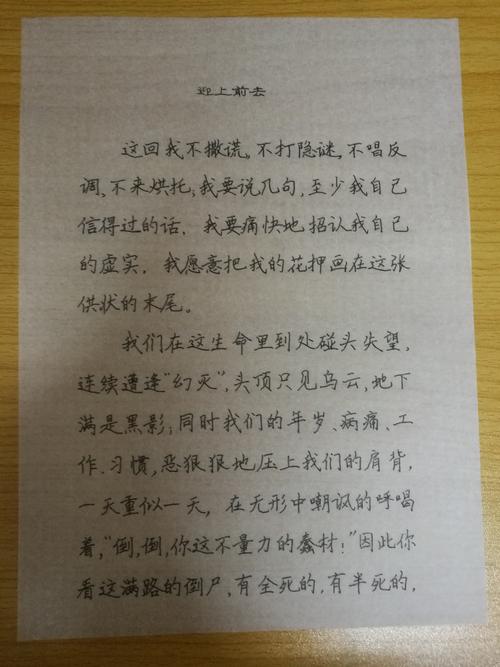 迎上前去
这回我不撒谎,不打隐谜,不唱反
调,不来烘托;我要说几句,至少我自己
信得过的话,我要痛快地招认我自己
的虚实,我愿意把我的花押画在这张
供状的末尾。
我们在这生命里到处碰头失望,
连续遭逢“幻灭”,头顶只见乌云,地下
满是黑影;同时我们的年岁、病痛、工
作、习惯,恶狠狠地压上我们的肩背,
一天重似一天,在无形中嘲讽的呼喝
着,“倒,倒,你这不量力的蠢材!”因此你
看这满路的倒尸,有全死的,有半死的,